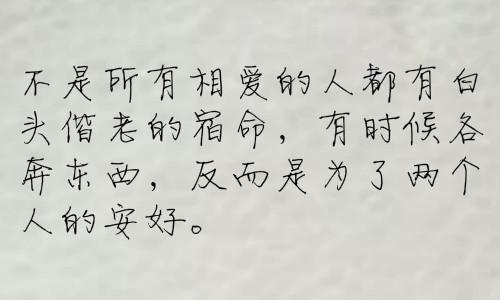 不是所有相爱的人都有白
头偕老的宿命，有时候各
奔东西，反而是为了两个
人的安好。